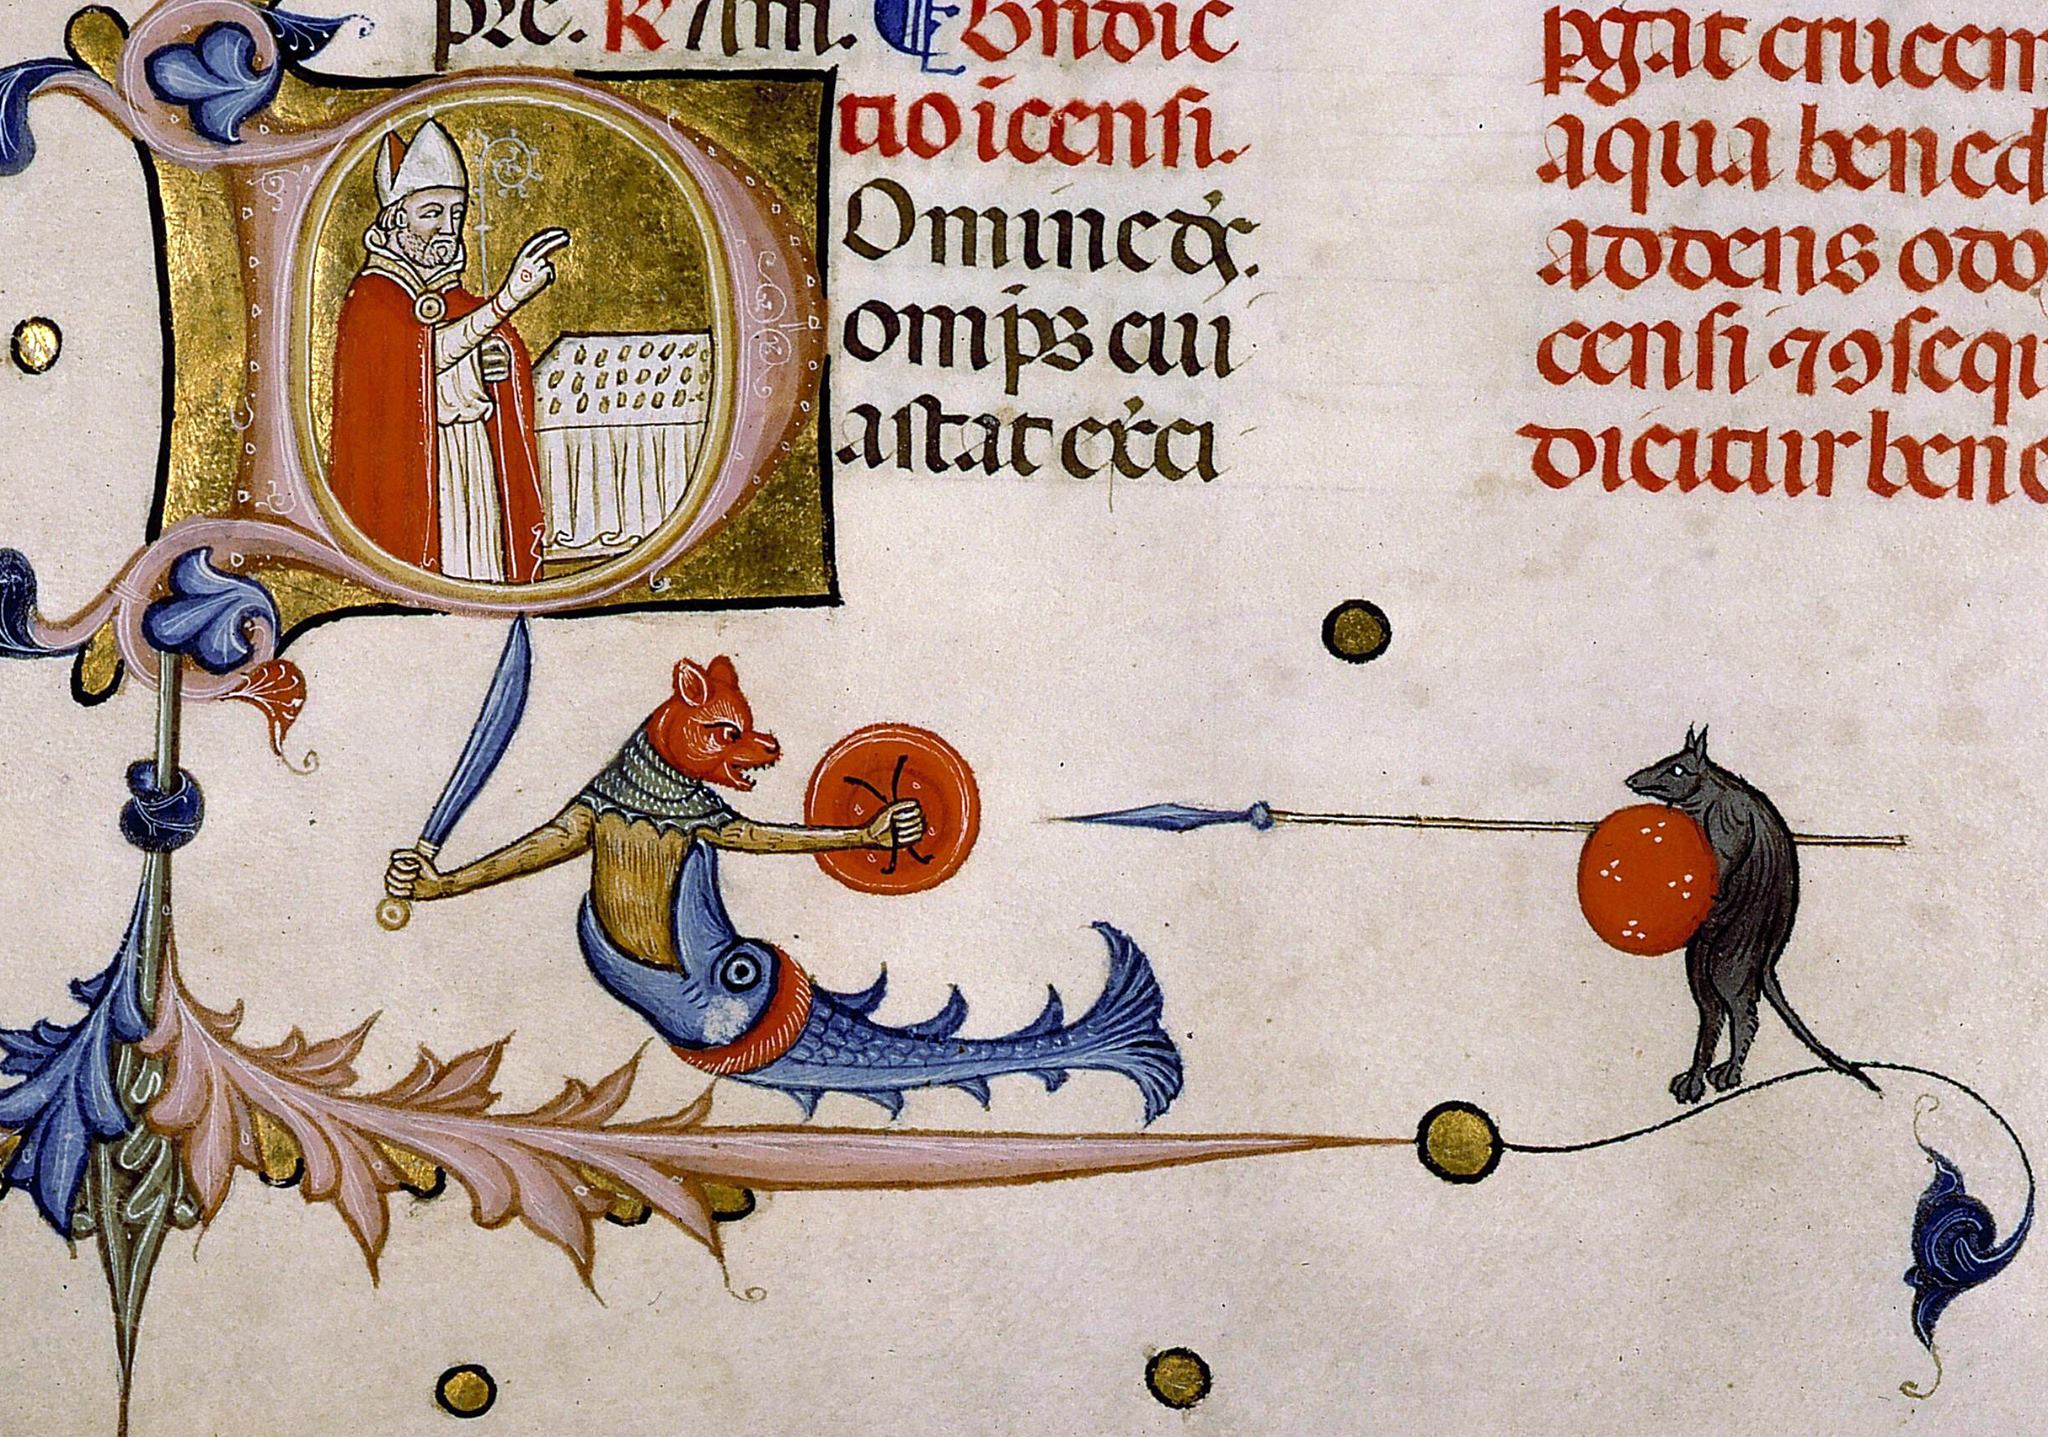 pre. R Am. Bndic
tio icensi.
Omine ds.
omps cui
astat exci
pgat crucem
aqua bened
addens odo
censi 79seqr
dicitur bene